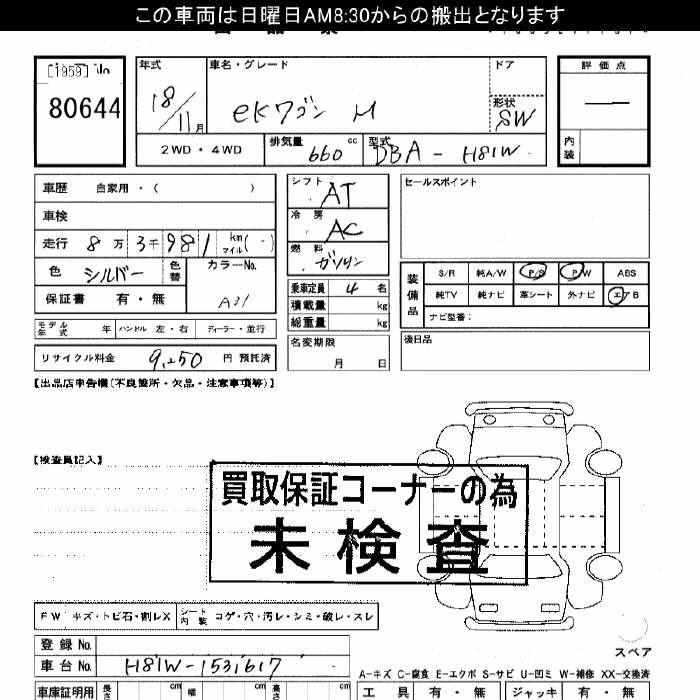 この車両は日曜日AM8:30からの搬出となります
[1959] No
80644
年式 18/11月
車名・グレード eKワゴン M
ドア
形状 SW
評価点
―
内装
2WD・4WD
排気量 660 cc
型式 DBA-H81W
車歴 自家用・( )
車検
走行 8万3千981 km マイル(-)
色 シルバー 色替
カラーNo. A31
保証書 有・無
シフト AT
冷房 AC
燃料 ガソリン
乗車定員 4 名
積載量 kg
総重量 kg
名変期限
月 日
セールスポイント
装備品
S/R 純A/W P/S P/W ABS
純TV 純ナビ 革シート 外ナビ エアB
ナビ型番:
後日品
モデル年式 年 ハンドル 左・右 ディーラー・並行
リサイクル料金 9,250 円 預託済
【出品店申告欄(不良箇所・欠品・注意事項等)】
【検査員記入】
買取保証コーナーの為
未検査
FW キズ・トビ石・割レX
シート内装 コゲ・穴・汚レ・シミ・破レ・スレ
登録No.
車台No. H81W-1531617
スペア
A-キズ C-腐食 E-エクボ S-サビ U-凹ミ W-補修 XX-交換済
車庫証明用 長さ cm 幅 cm 高さ cm
工具 有・無 ジャッキ 有・無